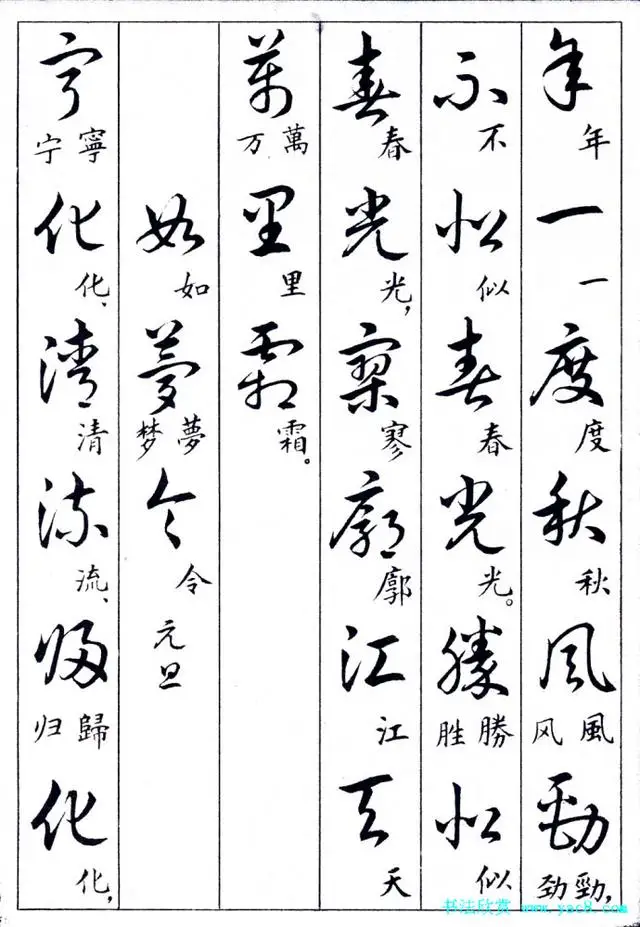 年一度秋風勁
年一度秋风風劲勁，
不似春光勝似
不似春光。胜勝似
春光寥廓江天
春光，寥廓江天
萬里霜
万萬里霜。
如夢令
如梦夢令
元旦
寧化清流歸化
宁寧化、清流、归歸化，
书法欣赏 www.yac8.com